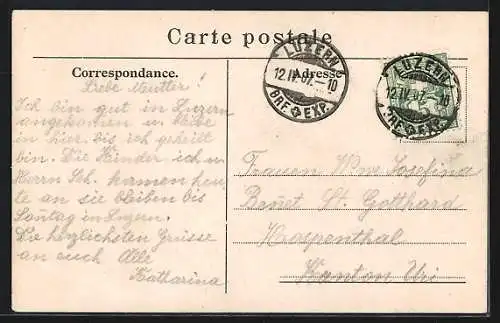 Carte postale
Correspondance.
Adresse
LUZERN
12.IV.07.–10
BRF. EXP.
LUZERN
12.IV.07.–10
BRF. EXP.
Liebe Mutter!
Ich bin gut in Luzern
angekommen u. bleibe
in hier, bis ich geheilt
bin. Die Kinder, ich u.
Herrn Sch. kamen heu-
te an sie bleiben bis
Sontag in Luzern.
Die herzlichsten Grüsse
an euch Alle
Katharina
Frauen Wwe Josefina
Benet St. Gotthard
Hospenthal
Kanton Uri